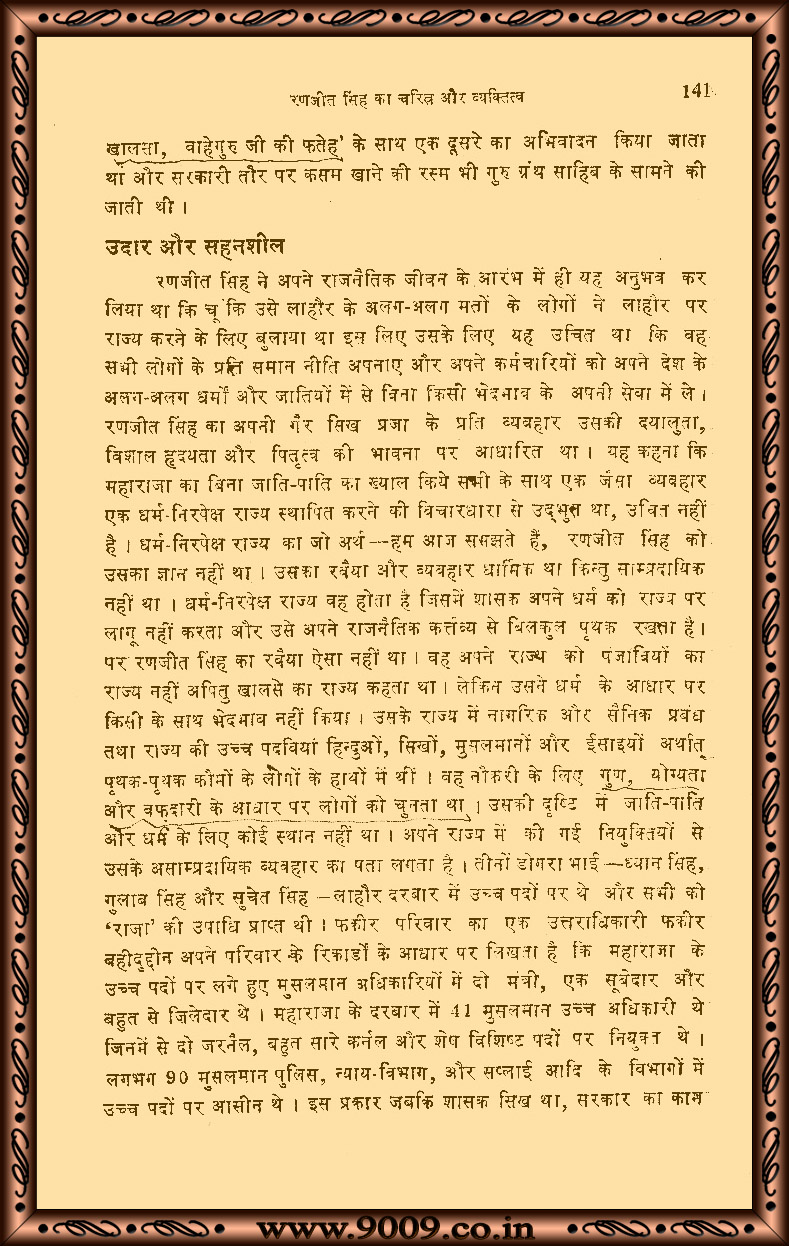 रणजीत सिंह का चरित्र और व्यक्तित्व 141
खालसा, वाहेगुरु जी की फतेह' के साथ एक दूसरे का अभिवादन किया जाता
था और सरकारी तौर पर कसम खाने की रस्म भी गुरु ग्रंथ साहिब के सामने की
जाती थी ।
उदार और सहनशील
रणजीत सिंह ने अपने राजनैतिक जीवन के आरंभ में ही यह अनुभव कर
लिया था कि चूंकि उसे लाहौर के अलग-अलग मतों के लोगों ने लाहौर पर
राज्य करने के लिए बुलाया था इस लिए उसके लिए यह उचित था कि वह
सभी लोगों के प्रति समान नीति अपनाए और अपने कर्मचारियों को अपने देश के
अलग-अलग धर्मों और जातियों में से बिना किसी भेदभाव के अपनी सेवा में ले ।
रणजीत सिंह का अपनी गैर सिख प्रजा के प्रति व्यवहार उसकी दयालुता,
विशाल हृदयता और पितृत्व की भावना पर आधारित था । यह कहना कि
महाराजा का बिना जाति-पाति का ख्याल किये सभी के साथ एक जैसा व्यवहार
एक धर्म-निरपेक्ष राज्य स्थापित करने की विचारधारा से उद्भुत था, उचित नहीं
है । धर्म-निरपेक्ष राज्य का जो अर्थ—हम आज समझते हैं, रणजीत सिंह को
उसका ज्ञान नहीं था । उसका रवैया और व्यवहार धार्मिक था किन्तु साम्प्रदायिक
नहीं था । धर्म-निरपेक्ष राज्य वह होता है जिसमें शासक अपने धर्म को राज्य पर
लागू नहीं करता और उसे अपने राजनैतिक कर्त्तव्य से बिलकुल पृथक रखता है।
पर रणजीत सिंह का रवैया ऐसा नहीं था । वह अपने राज्य को पंजाबियों का
राज्य नहीं अपितु खालसे का राज्य कहता था । लेकिन उसने धर्म के आधार पर
किसी के साथ भेदभाव नहीं किया । उसके राज्य में नागरिक और सैनिक प्रबंध
तथा राज्य की उच्च पदवियां हिन्दुओं, सिखों, मुसलमानों और ईसाइयों अर्थात्
पृथक-पृथक कौमों के लोगों के हाथों में थीं । वह नौकरी के लिए गुण, योग्यता
और वफ़दारी के आधार पर लोगों को चुनता था । उसकी दृष्टि में जाति-पाति
और धर्म के लिए कोई स्थान नहीं था । अपने राज्य में की गई नियुक्तियों से
उसके असाम्प्रदायिक व्यवहार का पता लगता है । तीनों डोगरा भाई—ध्यान सिंह,
गुलाब सिंह और सुचेत सिंह—लाहौर दरबार में उच्च पदों पर थे और सभी को
'राजा' की उपाधि प्राप्त थी । फकीर परिवार का एक उत्तराधिकारी फकीर
बहीदुद्दीन अपने परिवार के रिकार्डों के आधार पर लिखता है कि महाराजा के
उच्च पदों पर लगे हुए मुसलमान अधिकारियों में दो मंत्री, एक सूबेदार और
बहुत से ज़िलेदार थे । महाराजा के दरबार में 41 मुसलमान उच्च अधिकारी थे
जिनमें से दो जरनैल, बहुत सारे कर्नल और शेष विशिष्ट पदों पर नियुक्त थे ।
लगभग 90 मुसलमान पुलिस, न्याय-विभाग, और सप्लाई आदि के विभागों में
उच्च पदों पर आसीन थे । इस प्रकार जबकि शासक सिख था, सरकार का काम
www.9009.co.in